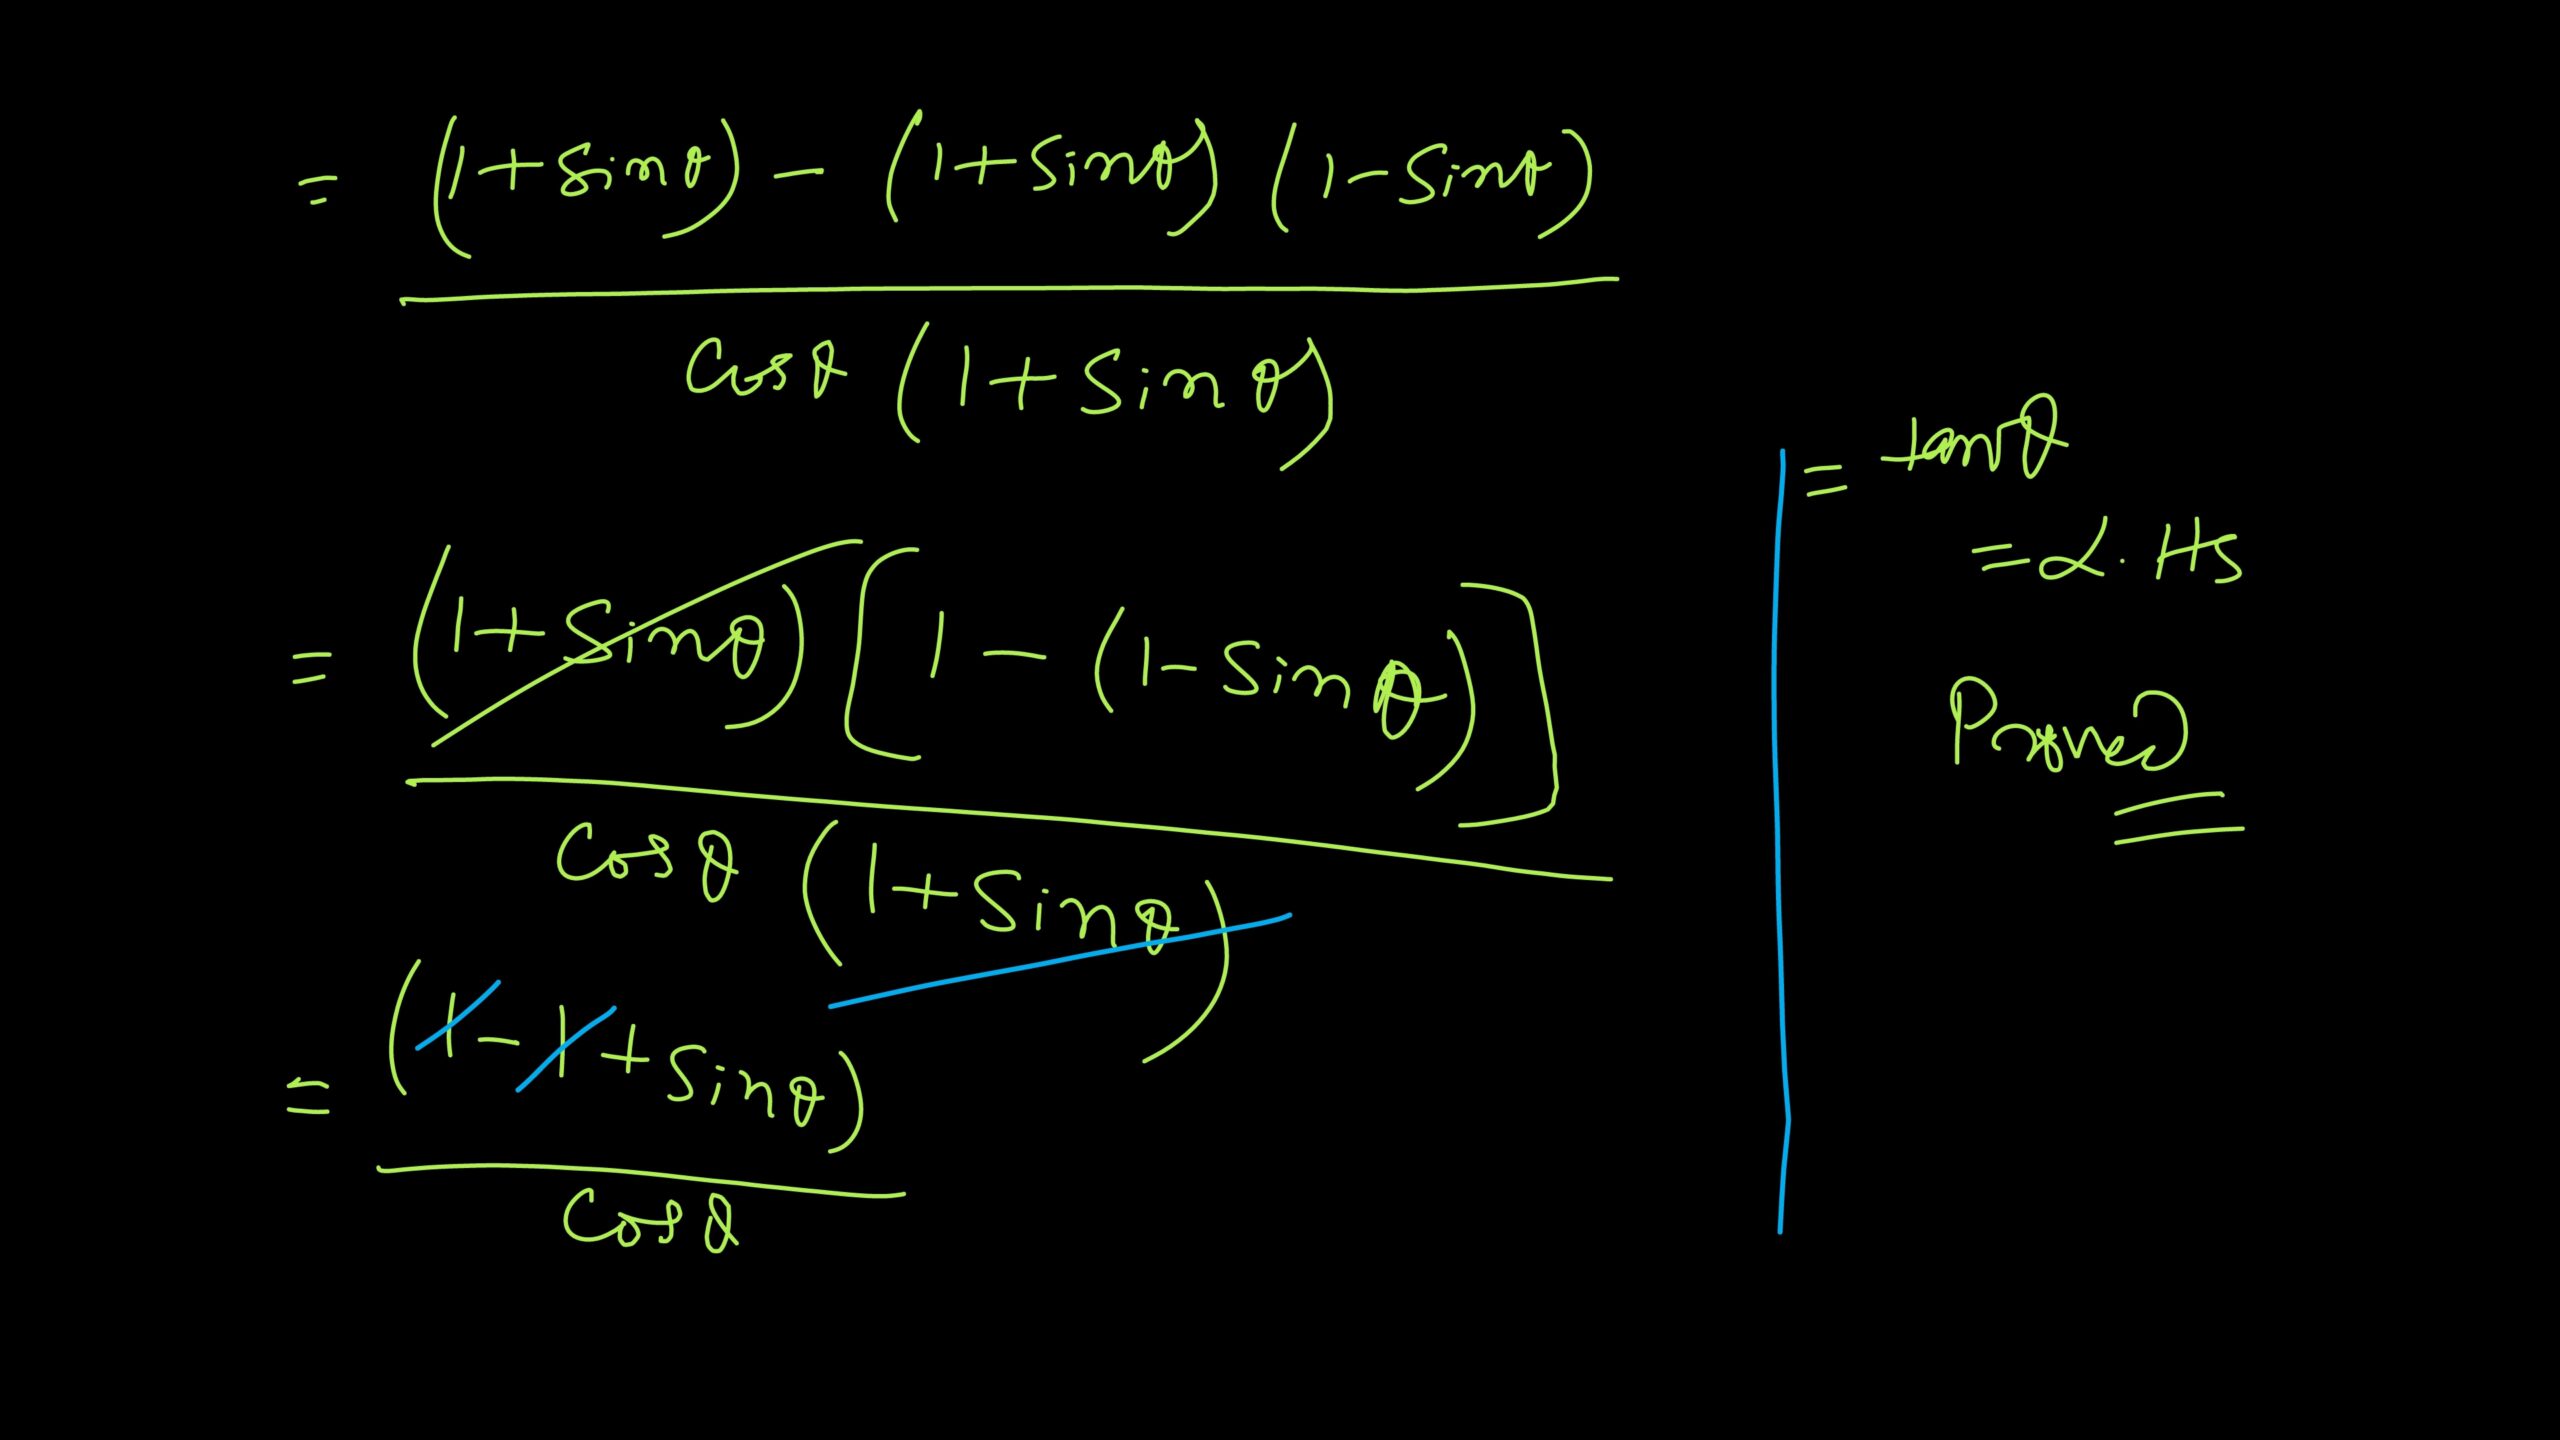 = (1+Sinθ) - (1+Sinθ) (1-Sinθ)
Cosθ (1+Sinθ)
= (1+Sinθ) [1 - (1-Sinθ)]
Cosθ (1+Sinθ)
= (1-1+Sinθ)
Cosθ
= tanθ
= L.Hs
Proved